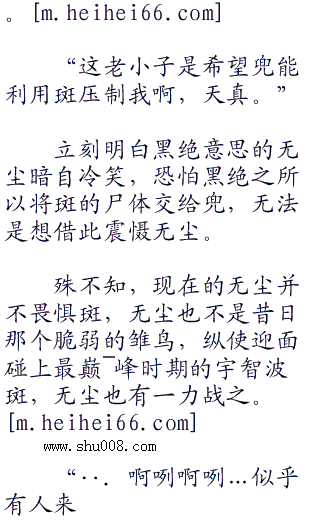 。[m.heihei66.com]
“这老小子是希望兜能
利用斑压制我啊，天真。”
立刻明白黑绝意思的无
尘暗自冷笑，恐怕黑绝之所
以将斑的尸体交给兜，无法
是想借此震慑无尘。
殊不知，现在的无尘并
不畏惧斑，无尘也不是昔日
那个脆弱的雏鸟，纵使迎面
碰上最巅¯峰时期的宇智波
斑，无尘也有一力战之。
[m.heihei66.com]
www.shu008.com
“··．啊咧啊咧…似乎
有人来